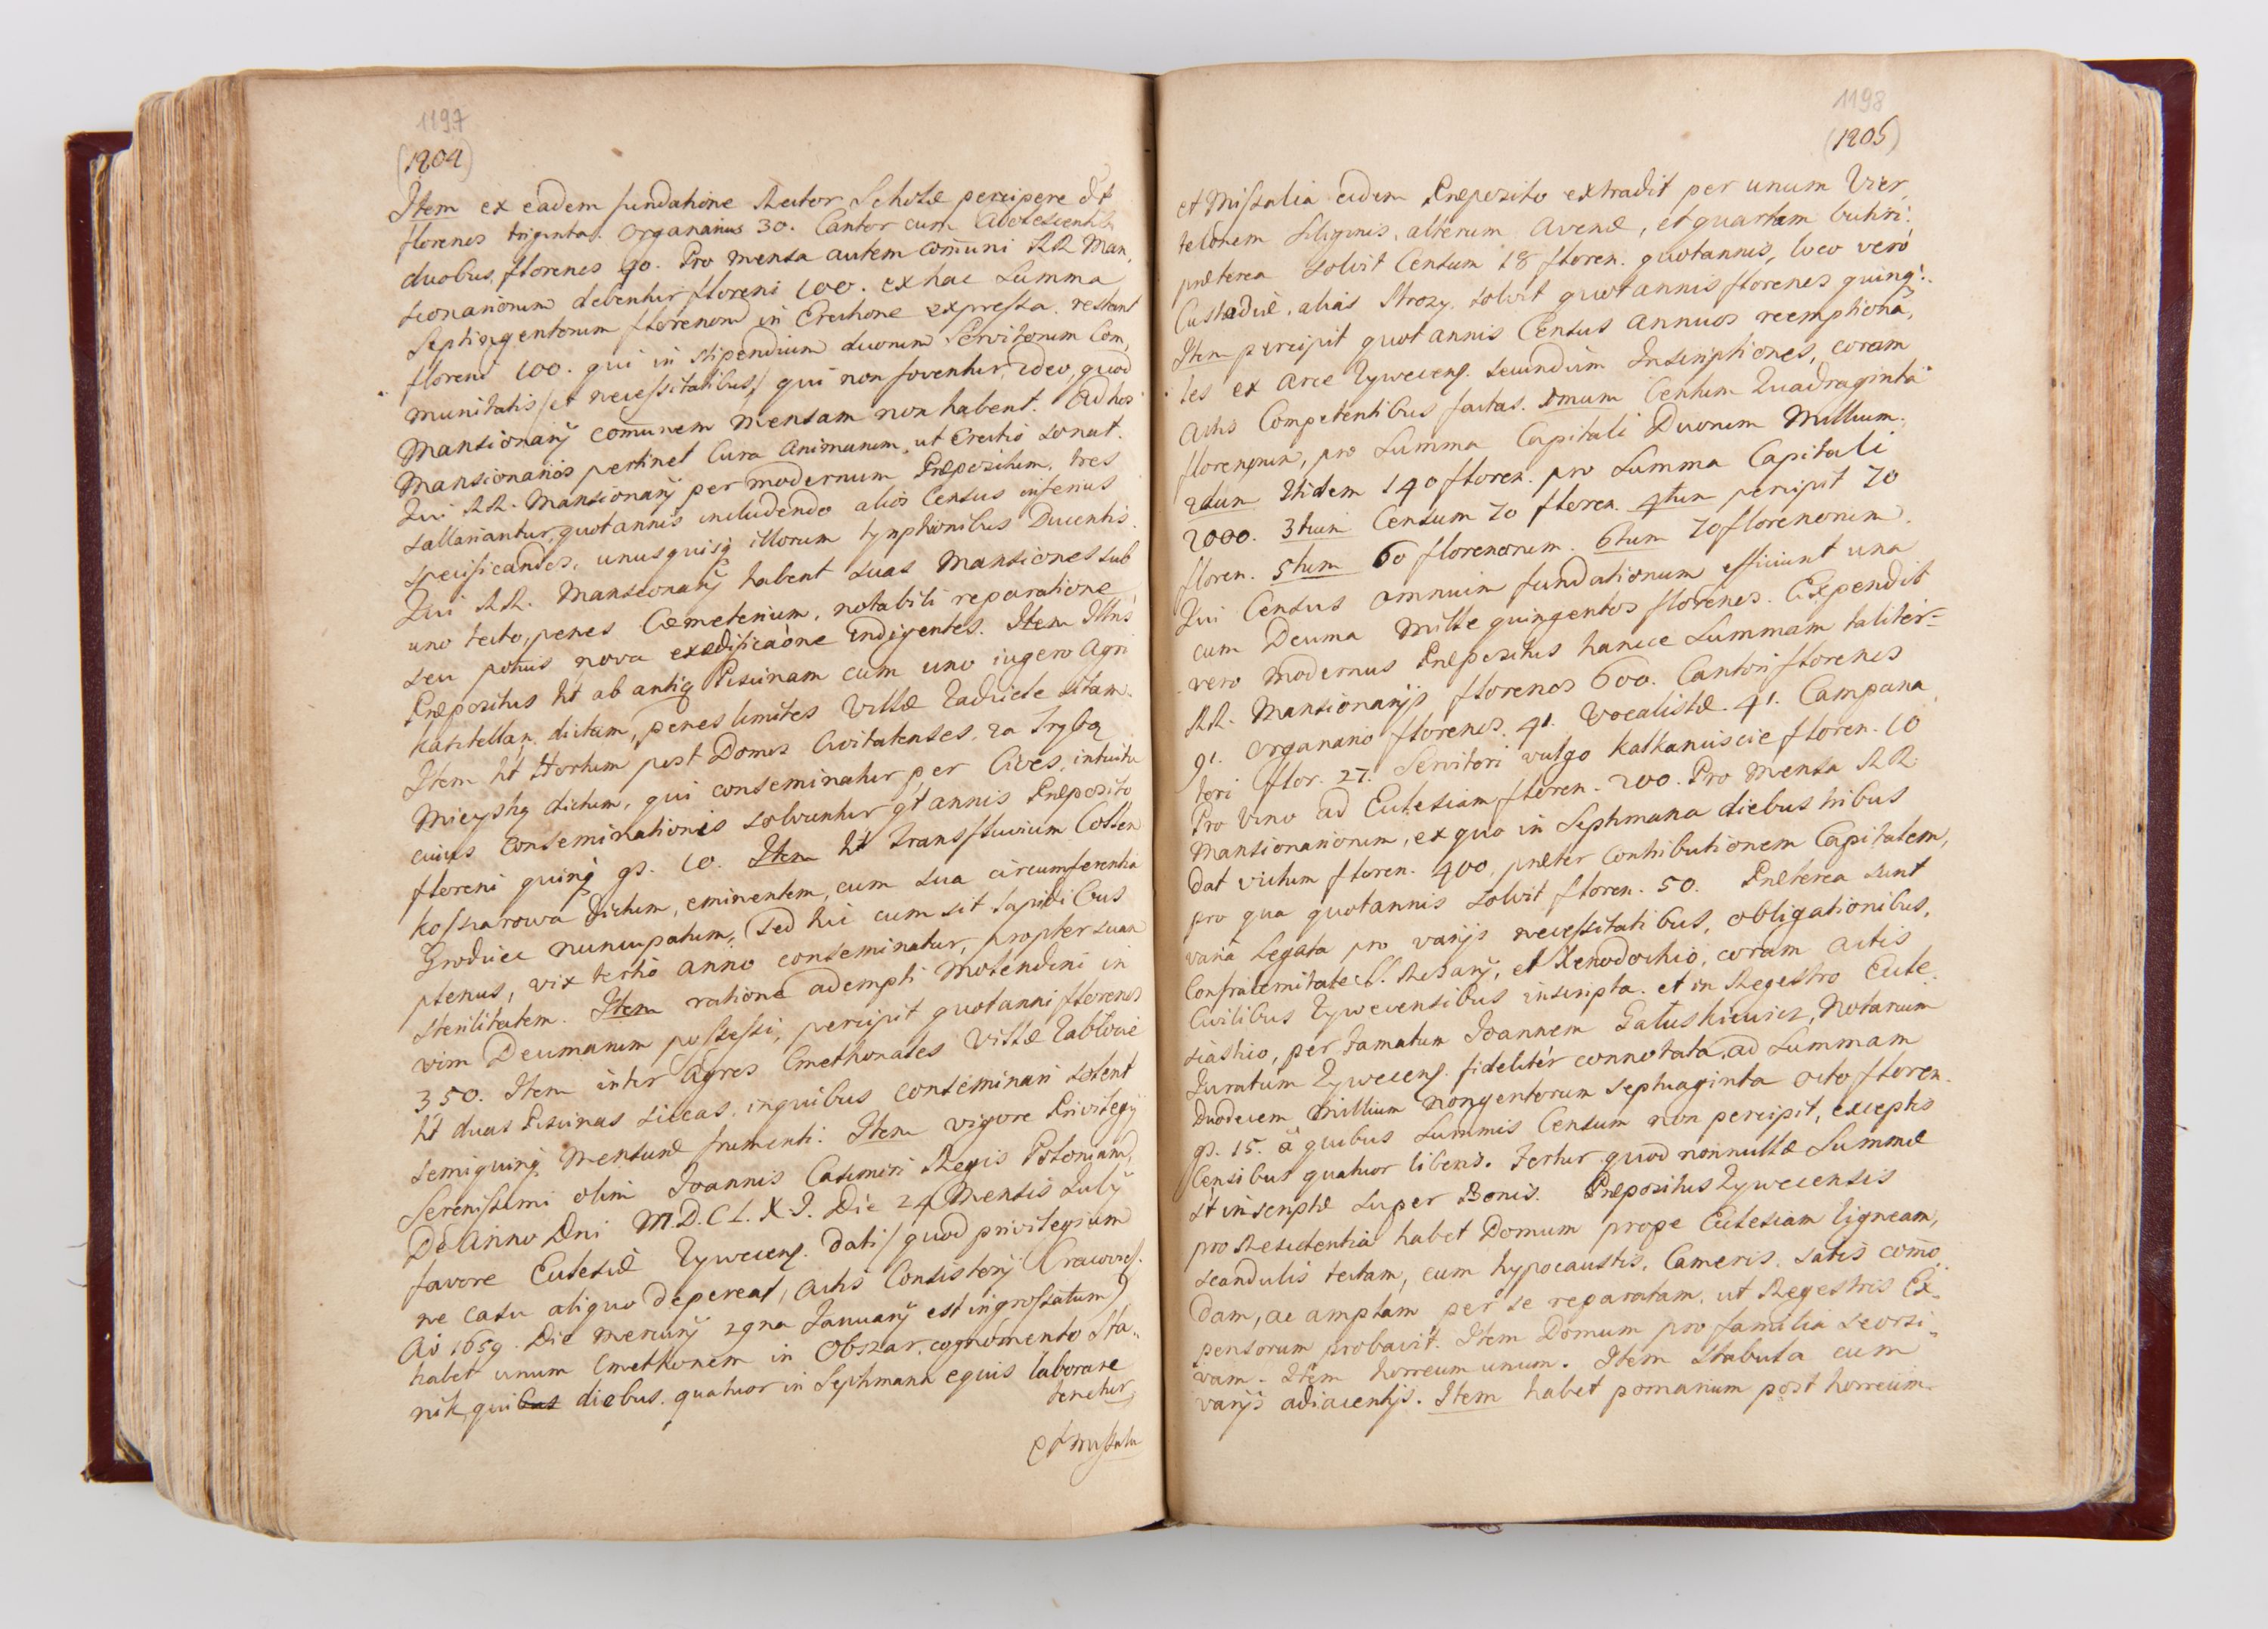 1197
(1204)
Item ex eadem fundatione Rector Scholæ percipere dt
florenos triginta. Organarius 30. Cantor cum Adolescentib9
duobus, florenos 90. Pro mensa autem com̄uni RR Man,
sionariorum debentur floreni 100. ex hac Summa
Septingentorum florenorū in Erectione expressa. restant
floreni 100. qui in stipendium duorum Servitorum Com,
munitatis /et necessitatibus/ qui non foventur, ideo, quod
Mansionarij com̄unem mensam non habent. Ad hos
Mansionarios pertinet Cura Animarum, ut Erectio sonat.
Qui RR. Mansionarij per modernum Præpositum, tres
sallariantur, quotannis includendo alios Census inferius
specificandos, unusquisq3 illorum tymphonibus Ducentis.
Qui RR. Mansionarij habent suas Mansiones sub
uno tecto, penes Cæmeterium, notabili reparatione
seu potius nova exædificaōne indigentes. Item Illms
Præpositus ht ab antiq Piscinam cum uno iugero Agri
Kasztellan dictum, penes limites Villæ Radziechi sitam.
Item ht Hortum post Domos Civitatenses, za Trybą
Mieyską dictum, qui conseminatur per Cives. intuitu
cuius conseminationis solvuntur qt annis Præposito
floreni quinq3 gs. 10. Item ht transfluvium Collem
Koszarowa dictum, eminentem, cum sua circumferentia
Grodziec nuncupatum, sed hic cum sit lapidibus
plenus, vix tertio anno conseminatur, propter suam
sterilitatem. Item ratione adempti Molendini in
vim Decimarum possessi, percipit quotanni florenos
350. Item inter Agros Cmethonales Villæ Zablocie
ht duas Piscinas siccas. in quibus conseminari solent
semiquinq3 Mensuræ frumenti. Item vigore Privilegij
Serenissimi olim Joannis Casimiri Regis Poloniarū
De Anno Dni M.D.C L. X.I. Die 24 Mensis Julij
favore Ecclesiæ Zywecens. dati / quod privilegium
ne casu aliquo depereat, Actis Consistorij Cracovies.
Ao 1659. Die Mercurij 29na Januarij est ingrossatum)
habet unum Cmethonem in Obszar, cognomento Sta„
nik, qui diebus. quatuor in Septimana equis laborare
tenetur,
et missalia
1198
(1205)
et Missalia eidem Præposito extradit per unum Vier,
telonem Siliginis, alterum Avenæ, et quartam butiri.
præterea solvit Censum 18 floren. quotannis, loco vero
Custodiæ, alias Strozy. solvit quot annis florenos quinq3.
Item percipit quot annis Census annuos reemptiona,
les ex Arce Zywecens. secundum Inscriptiones, coram
Actis Competentibus factas. 1mum Centum Quadraginta
florenorum, pro Summa Capitali Duorum Millium.
2dum Itidem 140 floren. pro Summa Capitali
2000. 3tium Censum 70 floren. 4tum percipit 70
floren. 5tum 60 florenorum. 6tum 70 florenorum.
Qui Census omnium fundationum efficiunt una
cum Decima Mille quingentos florenos. Expendit
vero modernus Præpositus hancce Summam taliter=
RR. Mansionarijs florenos 600. Cantori florenos
91. Organario florenos. 41. Vocalistæ. 41. Campana,
tori flor. 27. Servitori vulgo Kalkanciscie floren. 10
Pro Vino ad Ecclesiam floren. 200. Pro Mensa RR:
Mansionariorum, ex quo in Septimana diebus tribus
dat victum floren. 400, præter Contributionem Capitalem,
pro qua quotannis solvit floren. 50. Præterea sunt
varia Legata pro varijs necessitatibus, obligationibus,
Confraternitate SS. Rosarij, et Xenodochio, coram Actis
Civilibus Zywecensibus inscripta. et in Regestro Eccle,
siastico, per Famatum Joannem Gałuszkiewicz, Notarium
Juratum Zywecens. fideliter connotata, ad Summam
Duodecem Millium Nongentorum Septuaginta Octo floren.
gs. 15. à quibus Summis Censum non percipit, exceptis
Censibus quatuor liberis. Fertur quod nonnullæ Summæ
st inscriptæ super Bonis. Præpositus Zywecensis
pro Residentia habet Domum prope Ecclesiam ligneam,
scandulis tectam, cum hypocaustis, Cameris, satis com̄o„
dam, ac amplam, per se reparatam, ut Regestris Ex„
pensorum probavit. Item Domum pro familia seorsi„
vam. Item horreum unum. Item stabula cum
varijs adiacentijs. Item habet pomarium post horreum.